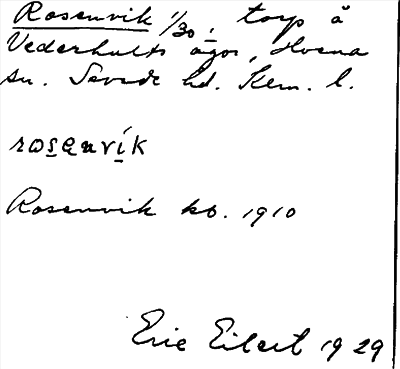 Rosenvik 1/30, torp å
Vederhults ägor, Hvena
sn. Sevede hd. Klm. l.
rosenvik
Rosenvik kb. 1910
Eric Eilert 1929